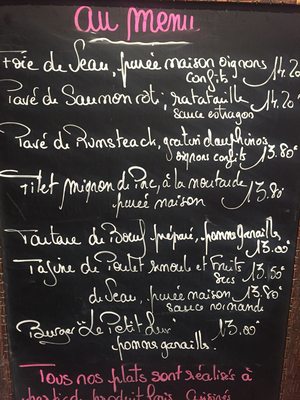 au menu
Foie de Veau, purée maison oignons
confits 14.20
Pavé de Saumon rôti, ratatouille 14.20
sauce estragon
Pavé de Rumsteack, gratin dauphinois
oignons confits 13.80€
Filet mignon de Porc, à la moutarde
purée maison 13.80
Tartare de Bœuf préparé, pommes grenailles
13.00€
Tajine de Poulet semoule et Fruits
secs 13.50
de Veau, purée maison 13.80€
sauce normande
Burger Le Petit 13.00€
pommes grenailles
Tous nos plats sont réalisés à
produits frais cuisinés